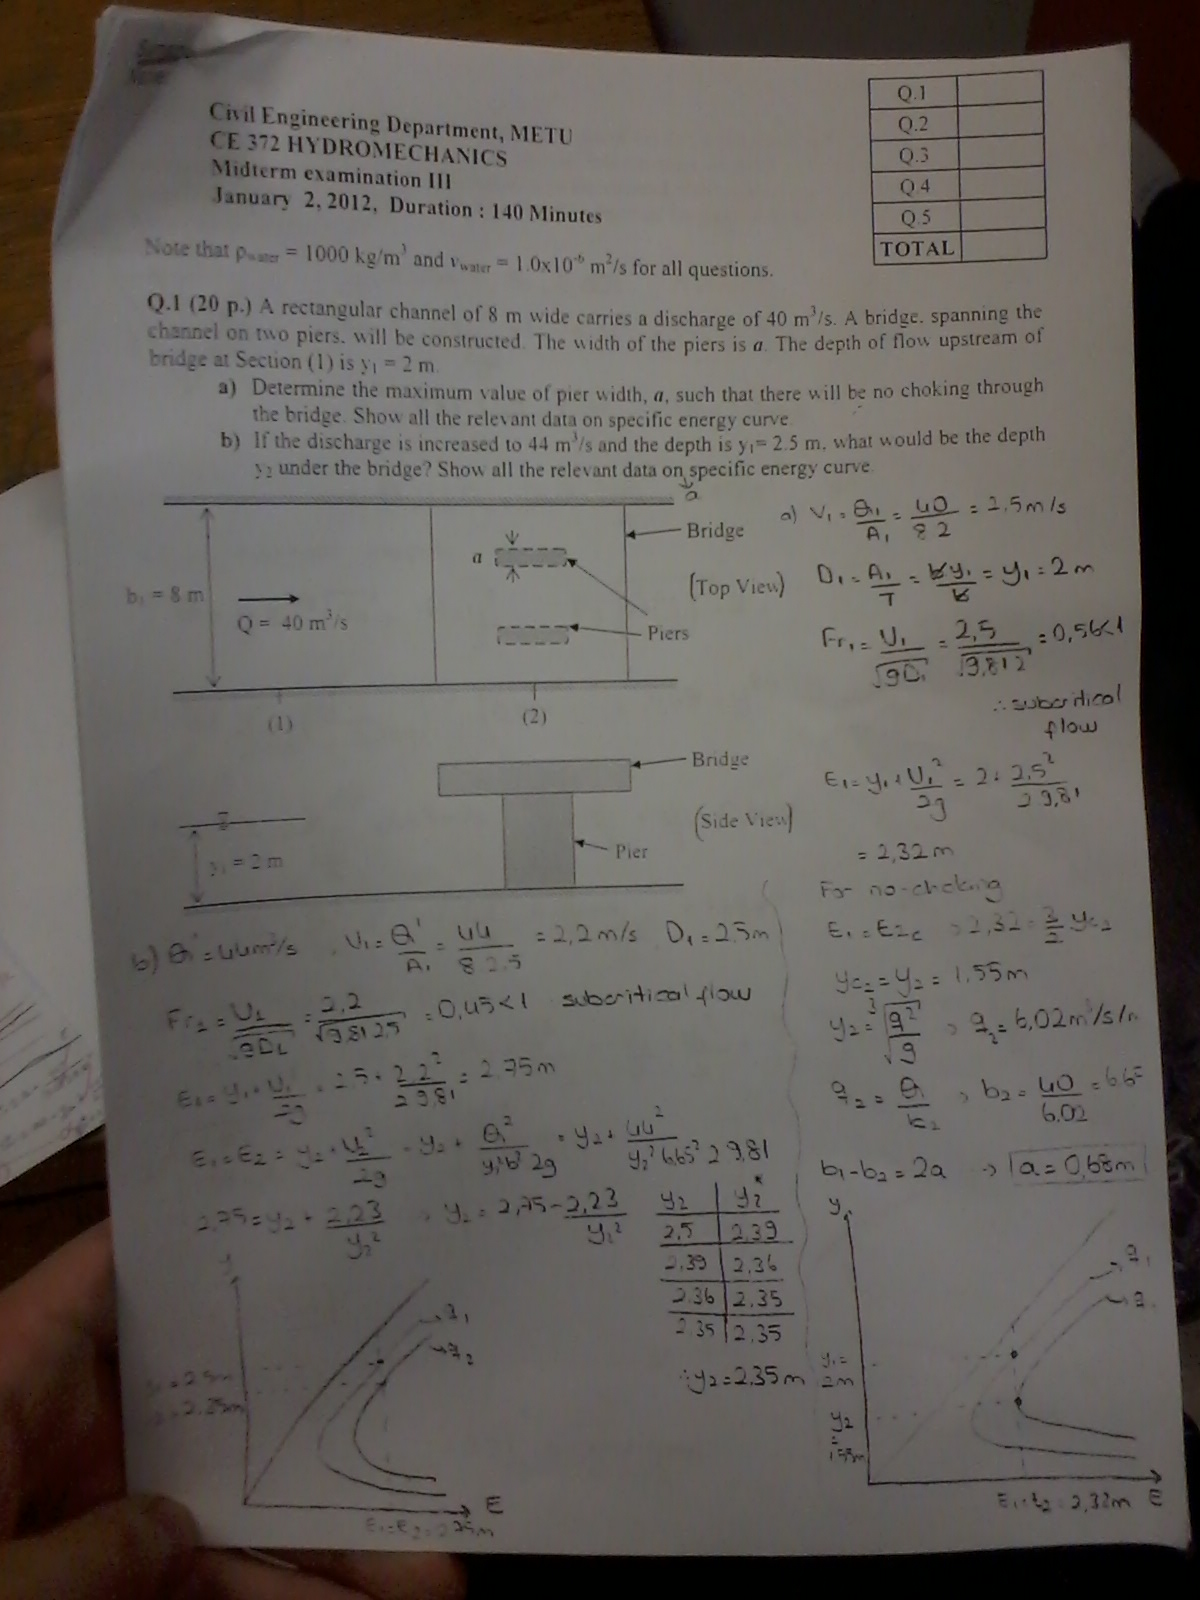 Civil Engineering Department, METU
CE 372 HYDROMECHANICS
Midterm examination III
January 2, 2012, Duration : 140 Minutes
Q.1
Q.2
Q.3
Q.4
Q.5
TOTAL
Note that ρwater = 1000 kg/m³ and νwater = 1.0x10⁻⁶ m²/s for all questions.
Q.1 (20 p.) A rectangular channel of 8 m wide carries a discharge of 40 m³/s. A bridge, spanning the
channel on two piers, will be constructed. The width of the piers is a. The depth of flow upstream of
bridge at Section (1) is y₁ = 2 m.
a) Determine the maximum value of pier width, a, such that there will be no choking through
the bridge. Show all the relevant data on specific energy curve.
b) If the discharge is increased to 44 m³/s and the depth is y₁= 2.5 m, what would be the depth
y₂ under the bridge? Show all the relevant data on specific energy curve.
a
b₁ = 8 m
Q = 40 m³/s
a
Bridge
(Top View)
Piers
(1)
(2)
Bridge
(Side View)
Pier
y₁ = 2 m
a) V₁ = Q₁/A₁ = 40/8.2 = 2,5 m/s
D₁ = A₁/T = by₁/b = y₁ = 2 m
Fr₁ = U₁/√gD₁ = 2,5/√9,81 2 = 0,56<1
∴ subcritical
flow
E₁ = y₁ + U₁²/2g = 2 + 2,5²/2 9,81
= 2,32 m
For no-choking
E₁ = E₂c → 2,32 = 3/2 yc₂
yc₂ = y₂ = 1,55 m
y₂ = ³√q²/g → q₂ = 6,02 m³/s/m
q₂ = Q/b₂ → b₂ = 40/6.02 = 6.65
b₁-b₂ = 2a → a = 0,68 m
y
q₁
y₁ =
2m
y₂
=
1,55m
E₁=E₂ = 2,32m E
b) Q' = 44 m³/s V₁ = Q'/A₁ = 44/8 2.5 = 2,2 m/s D₁ = 2.5m
Fr₂ = U₂/√gD₂ = 2,2/√9.81 2.5 = 0,45<1 subcritical flow
E₁ = y₁ + U₁²/2g = 2.5 + 2.2²/2 9,81 = 2.75m
E₁ = E₂ = y₂ + U₂²/2g = y₂ + Q²/y²b²2g = y₂ + 44²/y₂² 6.65² 2 9,81
2,75 = y₂ + 2,23/y₂² → y₂ = 2,75 - 2,23/y₂²
y₂ y₂*
2,5 2,39
2,39 2,36
2,36 2,35
2.35 2,35
∴ y₂ = 2,35m
y
q₁
q₂
E
E₁=E₂=2,75m